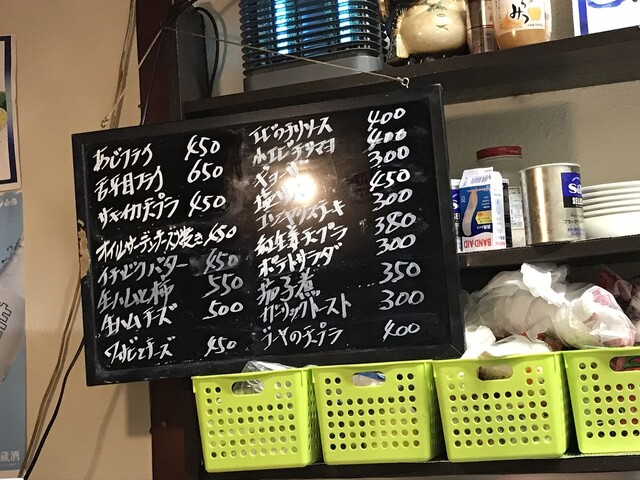 あじフライ 450
舌平目フライ 650
サキイカ天プラ 450
オイルサーデンチーズ焼き 450
イチヂクバター 450
生ハムと柿 550
生ハムチーズ 500
ワサビとチーズ 450
エビのチリソース 400
小エビチリマヨ 400
ギョーザ 300
450
コンニャクステーキ 300
紅生姜天プラ 350
ポテトサラダ 300
茄子煮 350
ガーリックトースト 300
ゴーヤのチプラ 400
BAND-AID
蔵酒